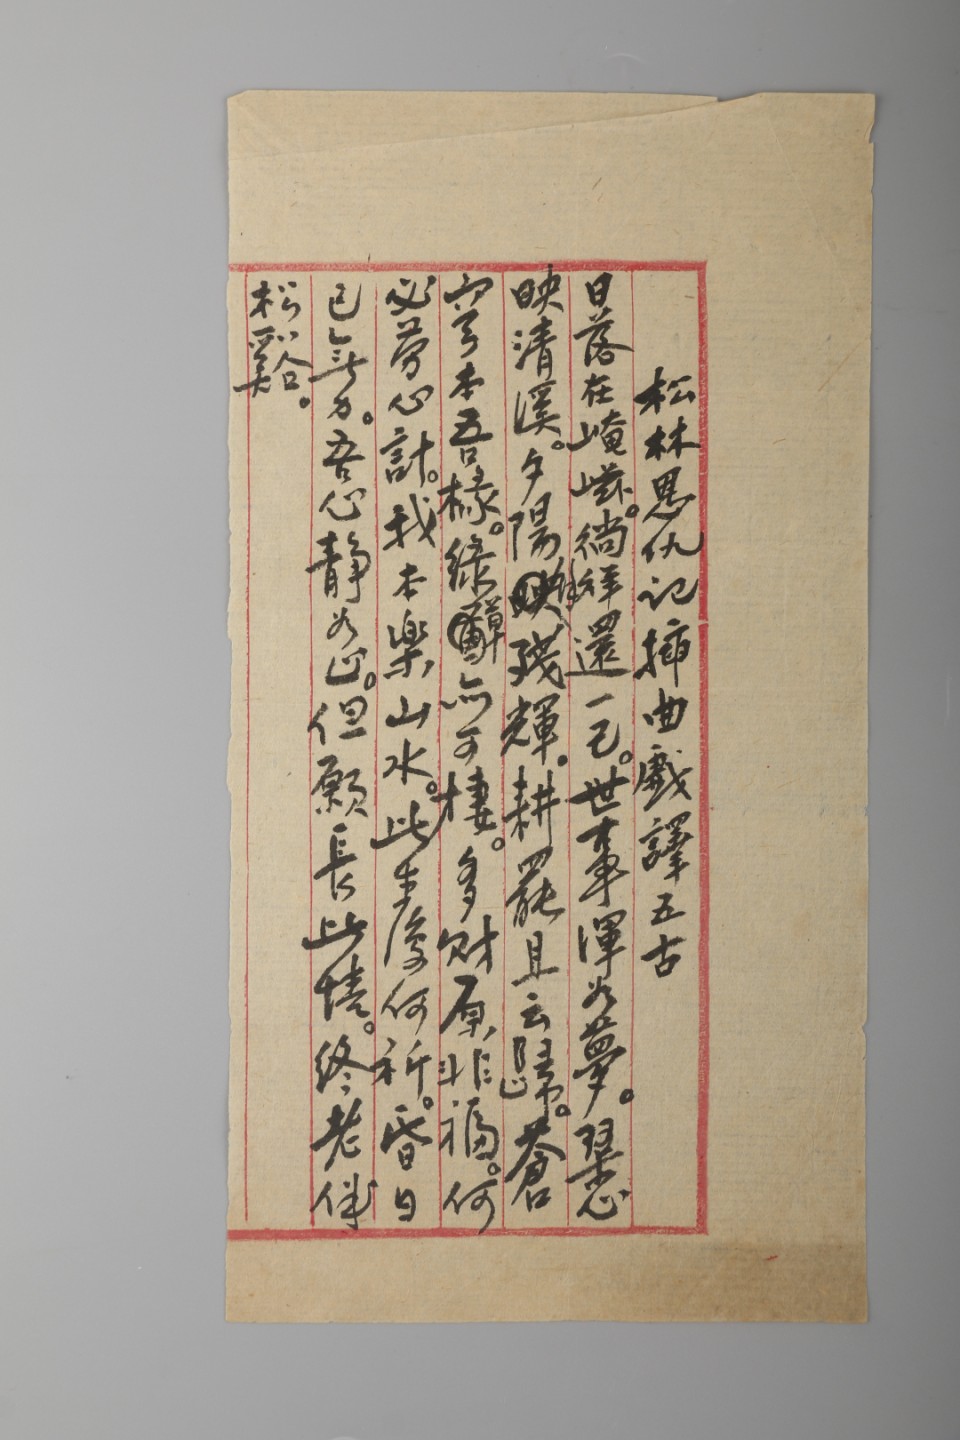 松林恩仇记插曲戲譯五古
日落在崦嵫。徜徉還一己。世事渾如夢。琴心
映清溪。夕陽殘輝。耕罷且云歸。蒼
穹本吾椽。綠草亦可棲。多財原非福。何
必勞心計。我本樂山水。此生復何祈。昏日
已無力。吾心静如止。但願長此情。終老伴
松谿。